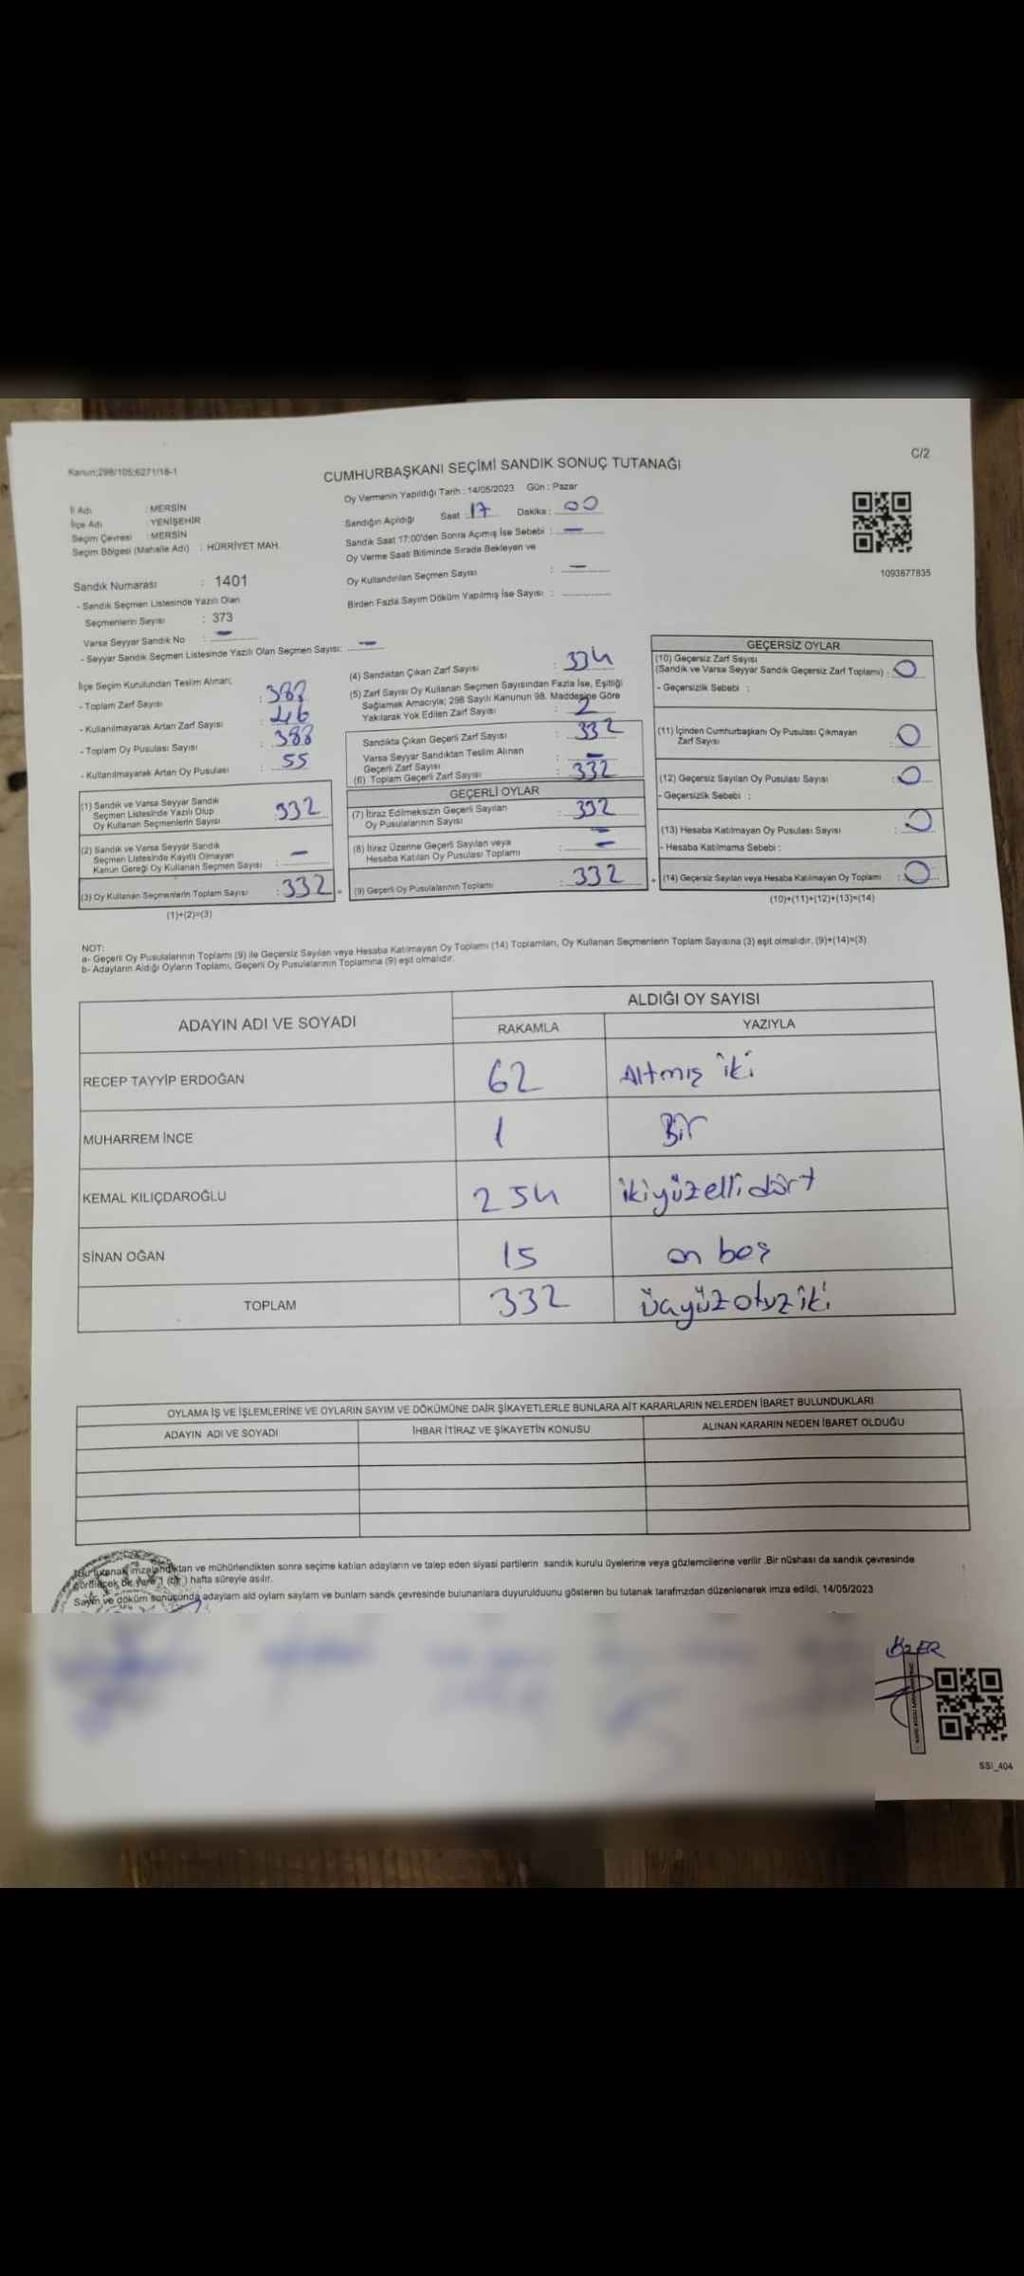 Kanun:298/105;6271/18-1
C/2
CUMHURBAŞKANI SEÇİMİ SANDIK SONUÇ TUTANAĞI
Oy Vermenin Yapıldığı Tarih : 14/05/2023 Gün : Pazar
İl Adı : MERSİN
İlçe Adı : YENİŞEHİR
Seçim Çevresi : MERSİN
Seçim Bölgesi (Mahalle Adı) : HÜRRİYET MAH.
Sandık Numarası : 1401
- Sandık Seçmen Listesinde Yazılı Olan
Seçmenlerin Sayısı : 373
Varsa Seyyar Sandık No : —
- Seyyar Sandık Seçmen Listesinde Yazılı Olan Seçmen Sayısı: —
Sandığın Açıldığı Saat : 17 Dakika : 00
Sandık Saat 17:00'den Sonra Açımış İse Sebebi : —
Oy Verme Saati Bitiminde Sırada Bekleyen ve
Oy Kullandırılan Seçmen Sayısı : —
Birden Fazla Sayım Döküm Yapılmış İse Sayısı :
1093877835
İlçe Seçim Kurulundan Teslim Alınan;
- Toplam Zarf Sayısı :
- Kullanılmayarak Artan Zarf Sayısı : 46
- Toplam Oy Pusulası Sayısı : 388
- Kullanılmayarak Artan Oy Pusulası : 55
(1) Sandık ve Varsa Seyyar Sandık
Seçmen Listesinde Yazılı Olup
Oy Kullanan Seçmenlerin Sayısı : 332
(2) Sandık ve Varsa Seyyar Sandık
Seçmen Listesinde Kayıtlı Olmayan
Kanun Gereği Oy Kullanan Seçmen Sayısı : —
(3) Oy Kullanan Seçmenlerin Toplam Sayısı : 332
(1)+(2)=(3)
(4) Sandıktan Çıkan Zarf Sayısı : 334
(5) Zarf Sayısı Oy Kullanan Seçmen Sayısından Fazla İse, Eşitliği
Sağlamak Amacıyla; 298 Sayılı Kanunun 98. Maddesine Göre
Yakılarak Yok Edilen Zarf Sayısı : 2
Sandıkta Çıkan Geçerli Zarf Sayısı : 332
Varsa Seyyar Sandıktan Teslim Alınan
Geçerli Zarf Sayısı : —
(6) Toplam Geçerli Zarf Sayısı : 332
GEÇERLİ OYLAR
(7) İtiraz Edilmeksizin Geçerli Sayılan
Oy Pusulalarının Sayısı : 332
(8) İtiraz Üzerine Geçerli Sayılan veya
Hesaba Katılan Oy Pusulası Toplamı : —
(9) Geçerli Oy Pusulalarının Toplamı : 332
GEÇERSİZ OYLAR
(10) Geçersiz Zarf Sayısı
(Sandık ve Varsa Seyyar Sandık Geçersiz Zarf Toplamı) : 0
- Geçersizlik Sebebi :
(11) İçinden Cumhurbaşkanı Oy Pusulası Çıkmayan
Zarf Sayısı : 0
(12) Geçersiz Sayılan Oy Pusulası Sayısı : 0
- Geçersizlik Sebebi :
(13) Hesaba Katılmayan Oy Pusulası Sayısı : 0
- Hesaba Katılmama Sebebi :
(14) Geçersiz Sayılan veya Hesaba Katılmayan Oy Toplamı : 0
(10)+(11)+(12)+(13)=(14)
NOT:
a- Geçerli Oy Pusulalarının Toplamı (9) ile Geçersiz Sayılan veya Hesaba Katılmayan Oy Toplamı (14) Toplamları, Oy Kullanan Seçmenlerin Toplam Sayısına (3) eşit olmalıdır. (9)+(14)=(3)
b- Adayların Aldığı Oyların Toplamı, Geçerli Oy Pusulalarının Toplamına (9) eşit olmalıdır.
ADAYIN ADI VE SOYADI ALDIĞI OY SAYISI
RAKAMLA YAZIYLA
RECEP TAYYİP ERDOĞAN 62 Altmış iki
MUHARREM İNCE 1 Bir
KEMAL KILIÇDAROĞLU 254 ikiyüzellidört
SİNAN OĞAN 15 on beş
TOPLAM 332 üçyüzotuziki
OYLAMA İŞ VE İŞLEMLERİNE VE OYLARIN SAYIM VE DÖKÜMÜNE DAİR ŞİKAYETLERLE BUNLARA AİT KARARLARIN NELERDEN İBARET BULUNDUKLARI
ADAYIN ADI VE SOYADI İHBAR İTİRAZ VE ŞİKAYETİN KONUSU ALINAN KARARIN NEDEN İBARET OLDUĞU
Bu tutanak imzalandıktan ve mühürlendikten sonra seçime katılan adayların ve talep eden siyasi partilerin sandık kurulu üyelerine veya gözlemcilerine verilir .Bir nüshası da sandık çevresinde
görülecek bir yere 1 (bir) hafta süreyle asılır.
Sayım ve döküm sonucunda adayların ald oyların sayları ve bunların sandık çevresinde bulunanlara duyurulduunu gösteren bu tutanak tarafmzdan düzenlenerek imza edildi, 14/05/2023
SSI_404